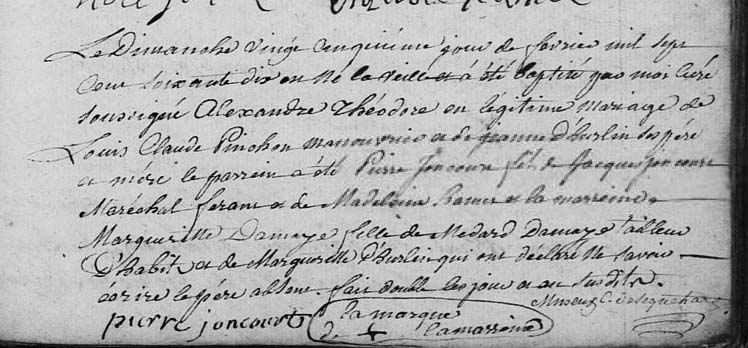 Le Dimanche vingt cinquième jour de fevrier mil sept
cent soixante dix est né la veille et a été baptisé par moi curé
soussigné Alexandre Théodore en légitime mariage de
Louis Claude Pinchon manouvrier et de jeanne d'Hurlin ses pére
et mére le parrein a été Pierre joncourt fils de Jacque joncourt
Maréchal ferant et de Madeleine et la marreine
Margueritte Damaye fille de Medard Damaye tailleur
D'habit et de Margueritte d'Hurlin qui ont déclaré Ne savoir
écrire le pére absent. fait double les jour et an susdits.
pierre joncourt la marque
de + la marreine